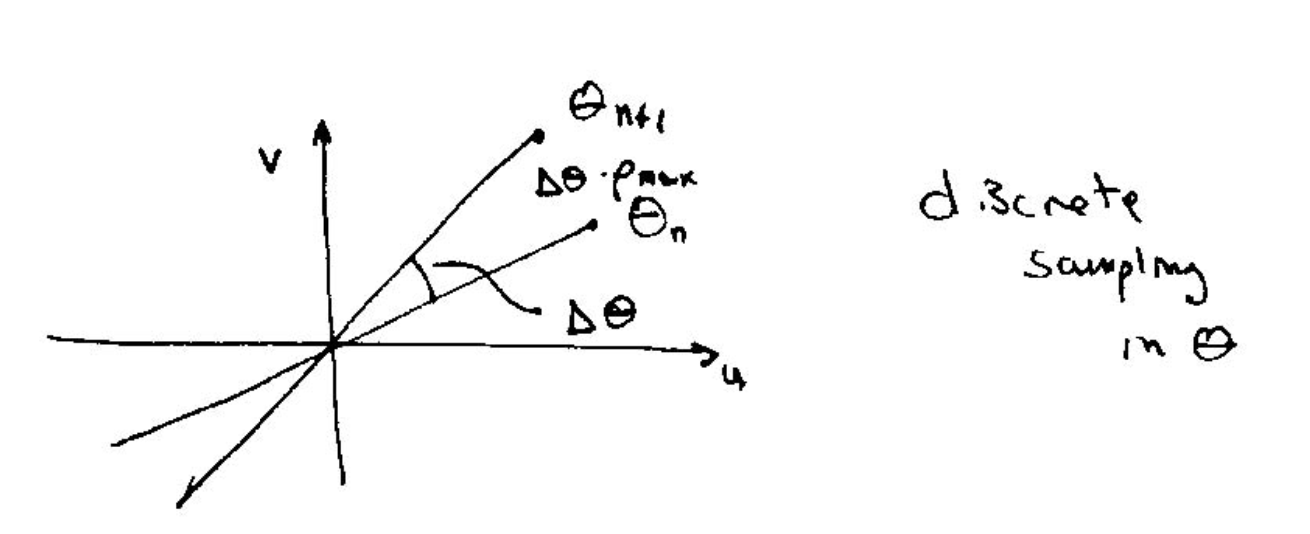 θn+1
V
Δθ·ρmax
θn
Δθ
u
discrete
sampling
in θ